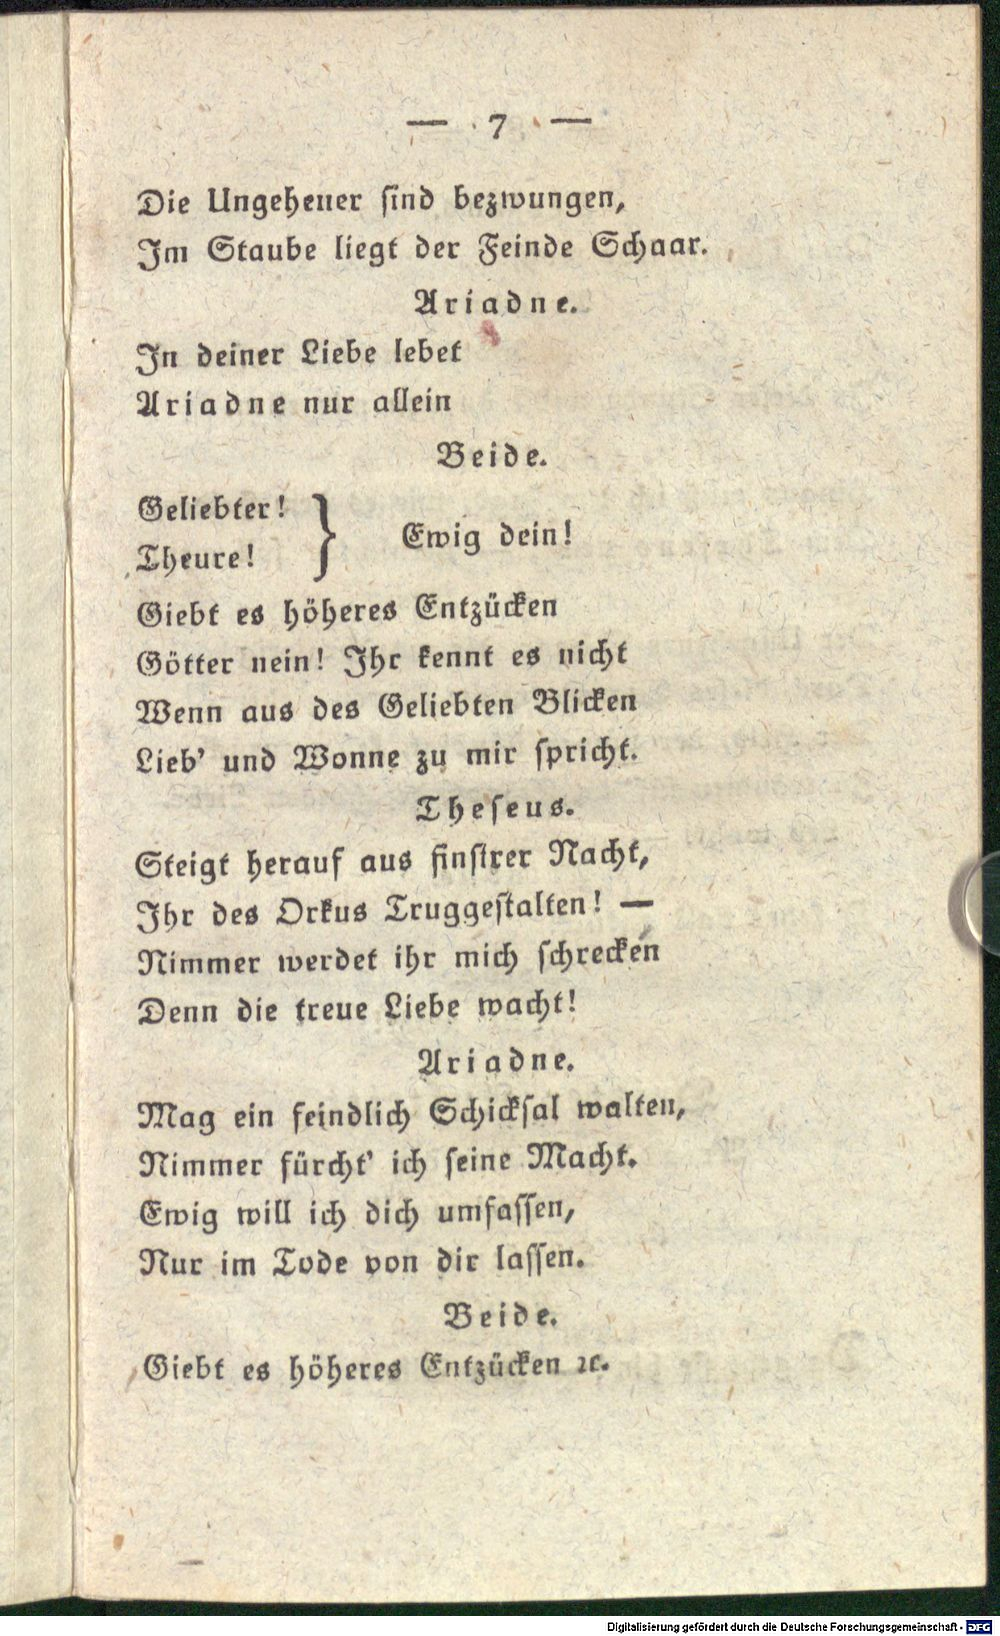 — 7 —
Die Ungeheuer sind bezwungen,
Im Staube liegt der Feinde Schaar.
Ariadne.
In deiner Liebe lebet
Ariadne nur allein
Beide.
Geliebter!
Theure!
} Ewig dein!
Giebt es höheres Entzücken
Götter nein! Ihr kennt es nicht
Wenn aus des Geliebten Blicken
Lieb' und Wonne zu mir spricht.
Theseus.
Steigt herauf aus finstrer Nacht,
Ihr des Orkus Truggestalten! —
Nimmer werdet ihr mich schrecken
Denn die treue Liebe wacht!
Ariadne.
Mag ein feindlich Schicksal walten,
Nimmer fürcht' ich seine Macht.
Ewig will ich dich umfassen,
Nur im Tode von dir lassen.
Beide.
Giebt es höheres Entzücken ꝛc.
Digitalisierung gefördert durch die Deutsche Forschungsgemeinschaft - DFG